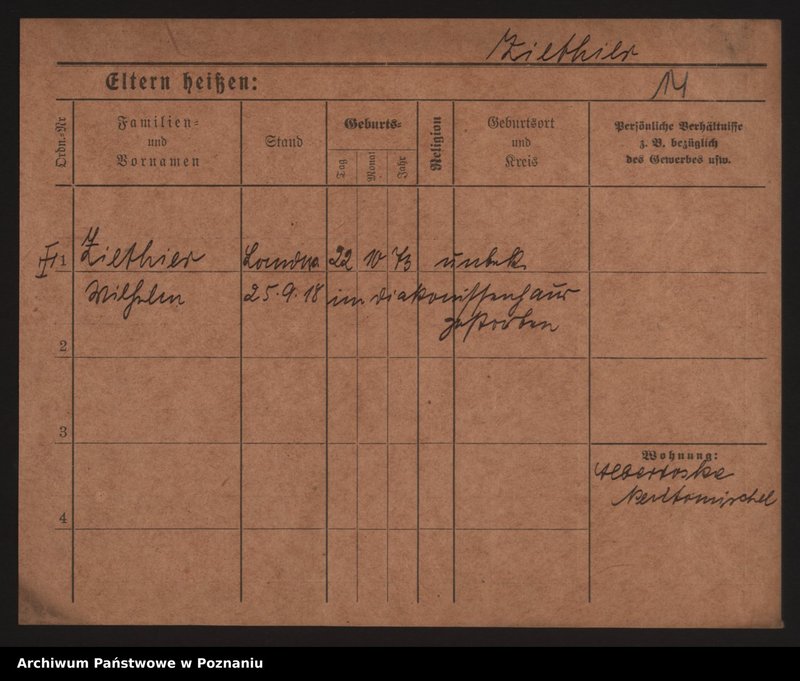 Ziethier
Eltern heißen:
14
Ordn.-Nr
Familien-
und
Vornamen
Stand
Geburts-
Tag
Monat
Jahr
Religion
Geburtsort
und
Kreis
Persönliche Verhältnisse
z. B. bezüglich
des Gewerbes usw.
1 Ziethier 22 10 73 unbek
Wilhelm 25.9.18 im Diakonissenhaus
gestorben
2
3
Wohnung:
Albertoske
Neutomischel
4
Archiwum Państwowe w Poznaniu